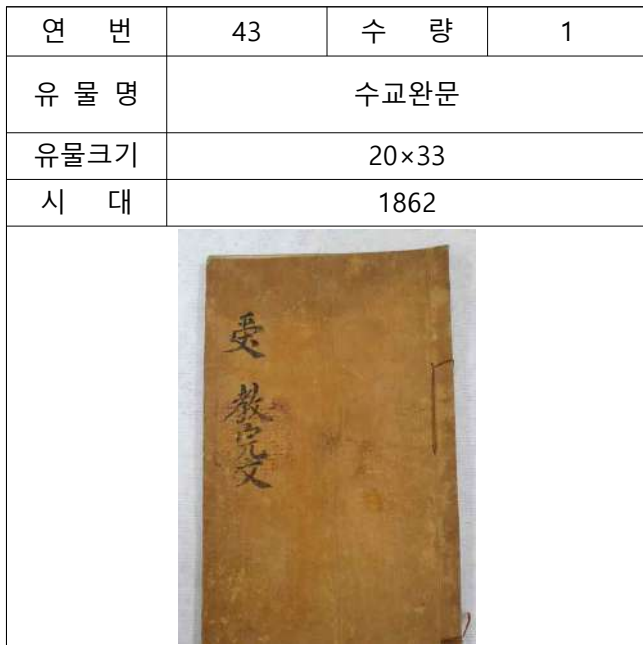 연 번 43 수 량 1
유 물 명 수교완문
유물크기 20×33
시 대 1862
受 教完文